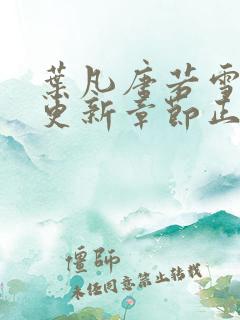 葉凡唐若雪
更新章節正
僵師
未经同意禁止转载